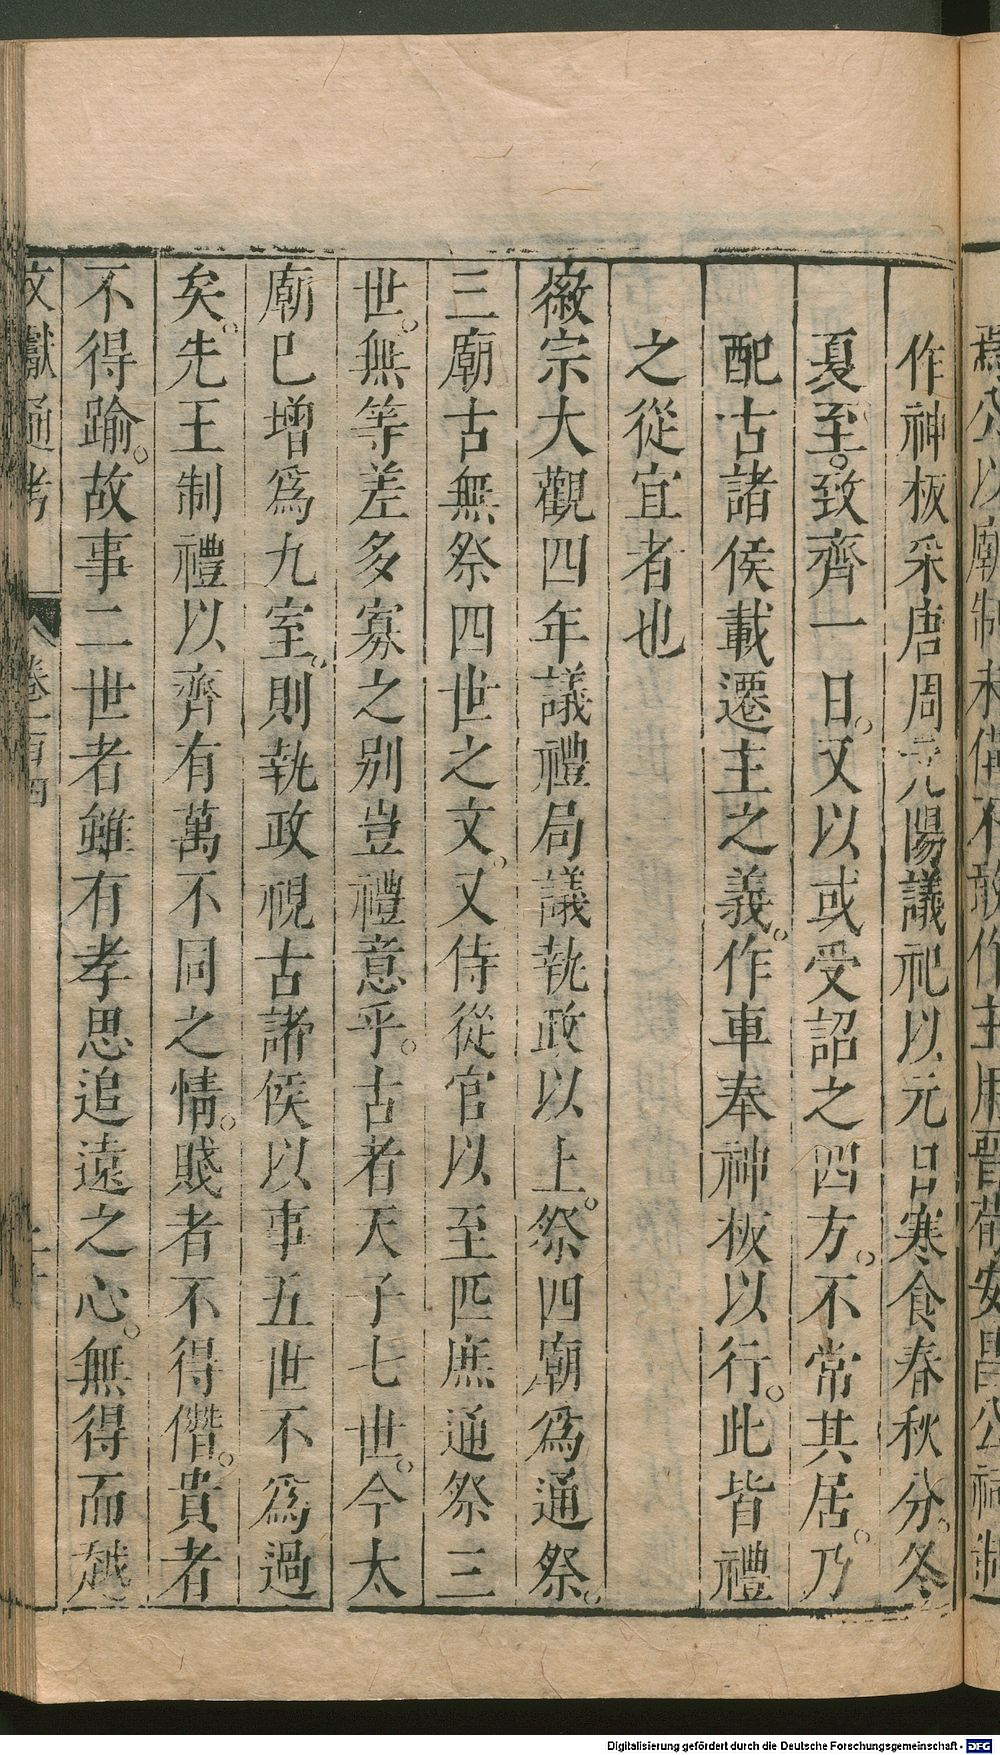 作神板采唐周元陽議祀以元日寒食春秋分。冬
夏至。致齊一日。又以或受詔之四方。不常其居。乃
配古諸侯載遷主之義。作車奉神板以行。此皆禮
之從宜者也
徽宗大觀四年議禮局議執政以上。祭四廟爲通祭。
三廟古無祭四世之文。又侍從官以至匹庶通祭三
世。無等差多寡之別豈禮意乎。古者天子七世。今太
廟已增爲九室。則執政視古諸侯以事五世不爲過
矣。先王制禮以齊有萬不同之情。賤者不得僭。貴者
不得踰。故事二世者雖有孝思追遠之心。無得而越
文獻通考 卷一百四
Digitalisierung gefördert durch die Deutsche Forschungsgemeinschaft - DFG